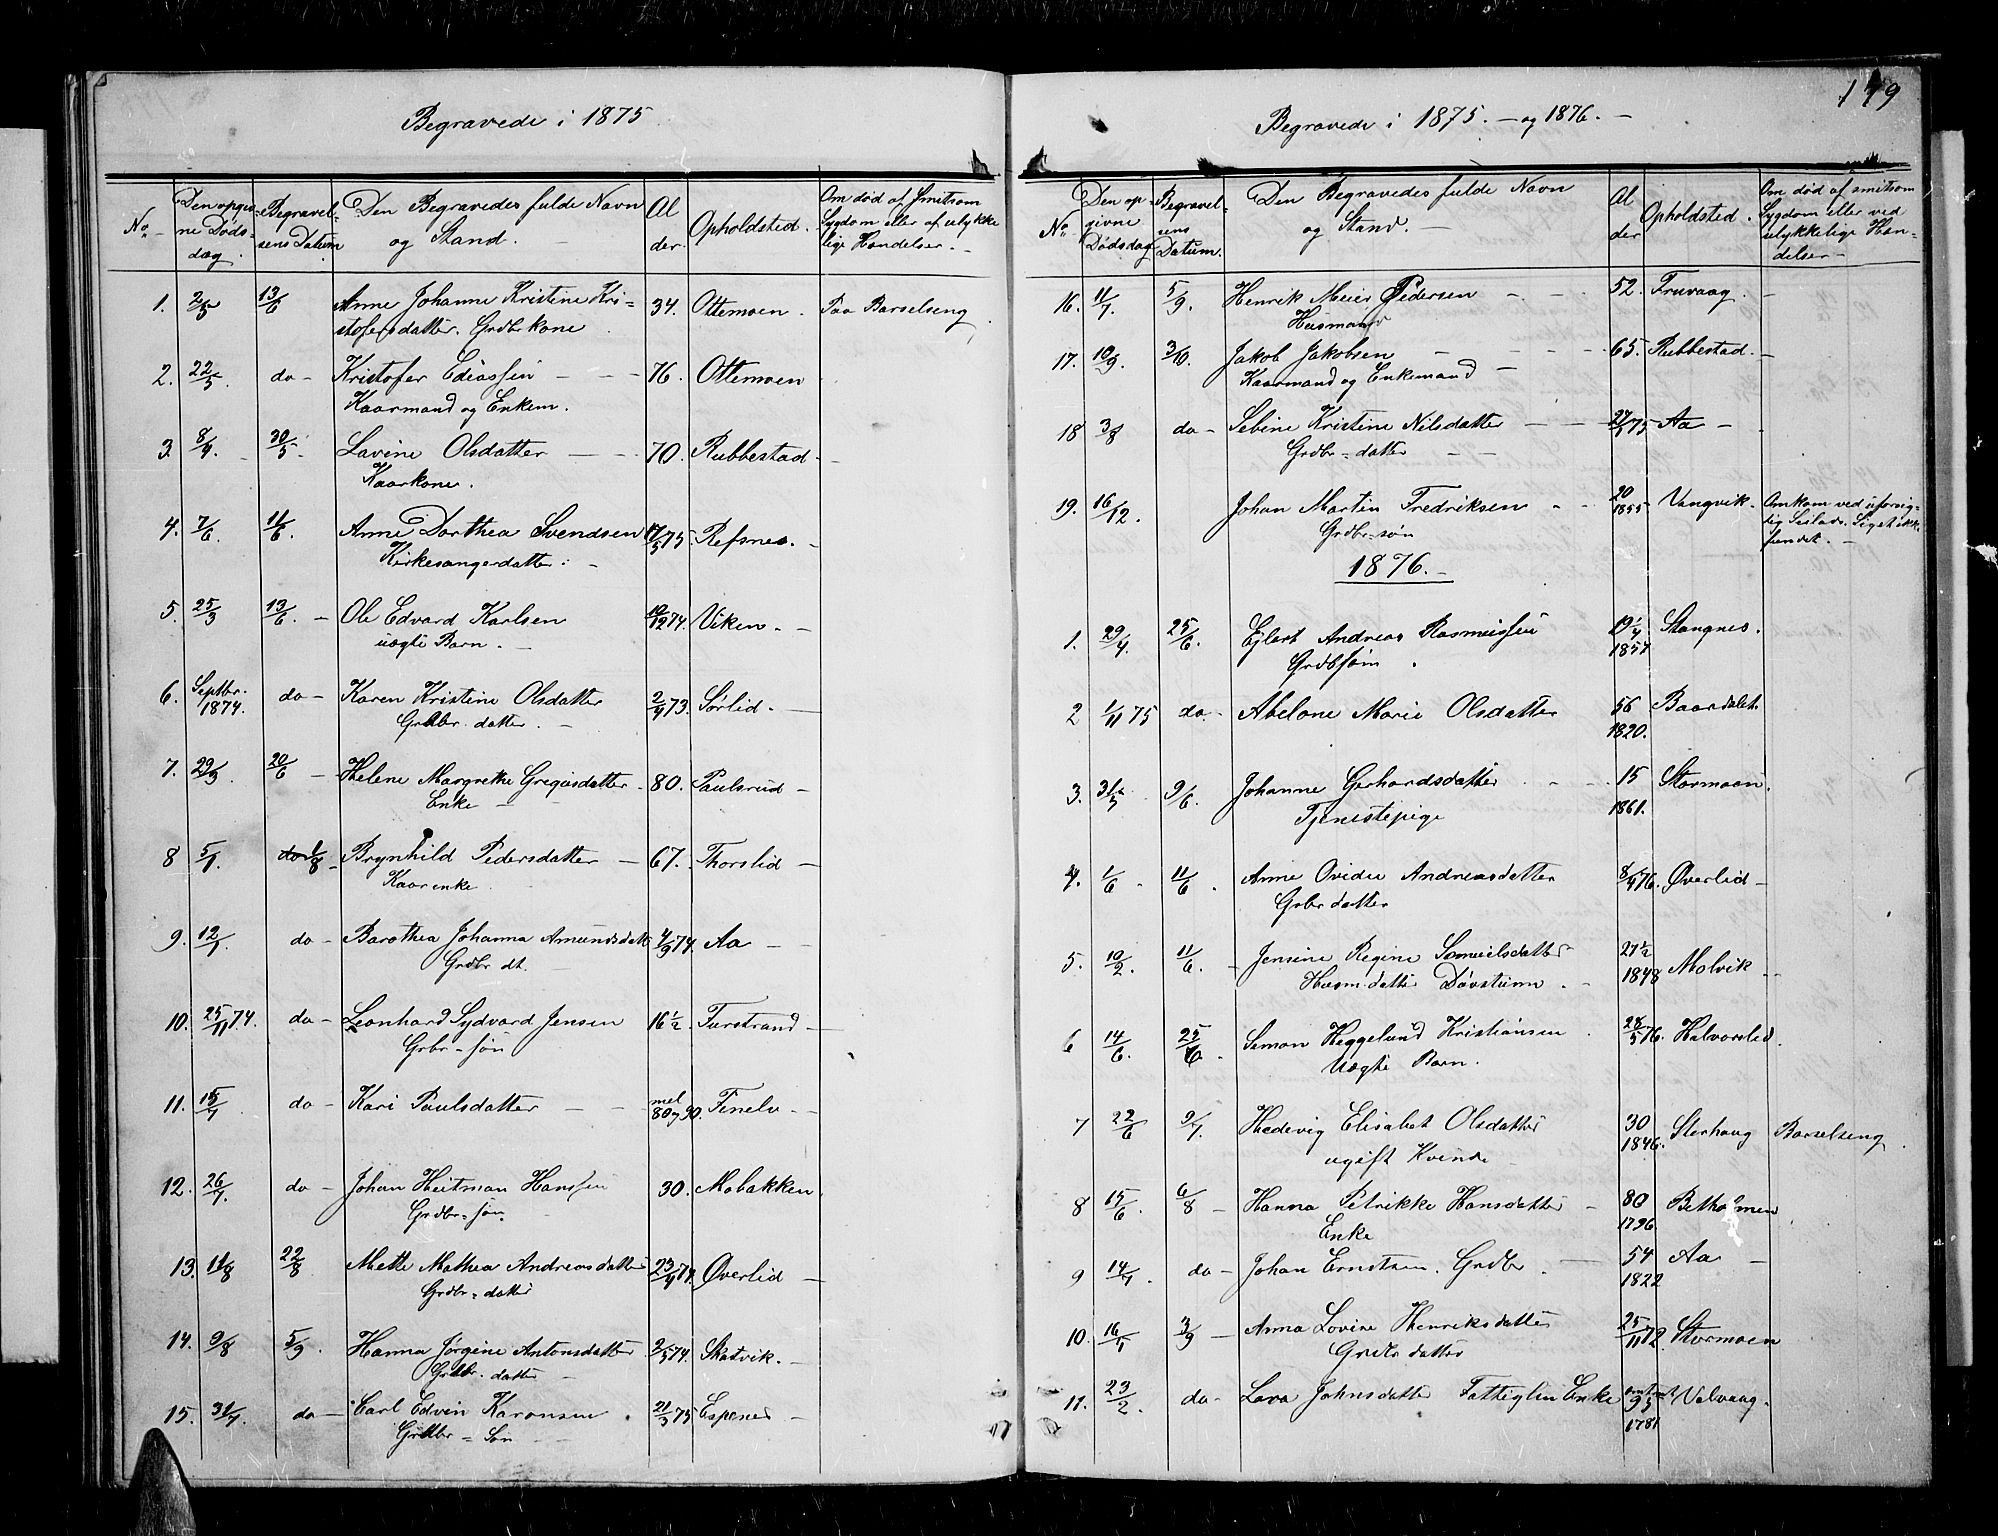 Begravede i 1875
No. Den opgivne Dødsdag. Begravelsens Datum Den Begravedes fulde Navn og Stand. Alder. Opholdsted. Om død af Smitsom Sygdom eller af ulykkelige Hændelser.
1. 2/5 13/6 Anne Johanne Kristine Kri- 34. Ottemoen. Paa Barselseng.
stofersdatter. Grdbr kone
2. 22/5. do - Kristofer Ediassen 76. Ottemoen
Kaarmand og Enkem.
3. 8/4. 30/5. Lavine Olsdatter 70. Rubbestad.
Kaarkone.
4. 7/6. 11/6. Anne Dorthea Svendsen 17/5 75. Refsnes.
Kirkesangerdatter.
5. 25/3 13/6. Ole Edvard Karlsen 10/12 74. Viken.
uægte Barn.
6. Septbr. 1874. do - Karen Kristine Olsdatter 2/4 73. Sørlid.
Grdbr. datter.
7. 29/3. 20/6 - Helene Margrethe Gregusdatter 80. Paulsrud -
Enke -
8 5/1. do 1/8 - Brynhild Pedersdatter - 67. Thorslid -
Kaarenke
9. 12/1. do - Barothea Johanna Amundsdatt 4/9 74. Aa -
Grdbr dt.
10. 25/11 74. do - Leonhard Sydvard Jensen 16 1/2 Furstrand -
Grbr - søn
11. 15/7 do - Kari Paulsdatter mel 80 og 90. Finelv -
12. 26/7. do - Johan Heitman Hanssen 30. Mobakken.
Grdbr - søn.
13. 11/8 22/8 Mette Mathea Andreasdatter 23/4 74. Øverlid -
Grdbr - datter
14. 9/8 5/9. Hanna Jørgine Antonsdatter 2/5 74. Skatvik. -
Grdbr. datter -
15. 31/7. do - Carl Edvin Karonsen. 21/3 75 Espenes -
Grdbr - Søn
179
Begravede i 1875. - og 1876. -
No. Den opgivne Dødsdag Begravelsens Datum. Den Begravedes fulde Navn og Stand. - Alder Opholdsted. Om død af smitsom Sygdom eller ved ulykkelige Hændelser -
16. 11/7. 5/9. Henrik Meier Pedersen - 52. Truvaag.
Husmand
17. 10/9. 3/10. Jakob Jakobsen - 65. Rubbestad. -
Kaarmand og Enkemand
18 3/8 do - Sebine Kristine Nilsdatter 75 Aa -
Grdbr - datter
19. 16/12. Johan Martin Fredriksen - 20 1855 Vangvik. Omkom ved uforsig-
Grdbr-søn tig Seilads. Liget ikke
fundet. -
1876. -
1. 29/4. 25/6. Ejlert Andreas Rasmussen 19 1/4 1857 Stangnes.
Grdbsøn.
2 1/11 75 do. - Abelone Marie Olsdatter 56 1820. Baardslet.
3. 31/5 9/6. Johanne Gerhardsdatter 15 1861. Stormoen.
Tjenestepige
4. 1/6. 11/6. Anne Ovidie Andreasdatter 8/4 76. Øverlid -
Grbr datter
5. 10/2. 11/6. - Jensine Regine Samuelsdatter 27 1/2 1848 Molvik -
Husm. datter Døvstum.
6 14/6. 25/6. - Simon Heggelund Kristiansen 28/5 76. Halvorslid.
Uægte Barn.
7 22/6 9/7. Hedevig Elisabet Olsdatter 30 1846. Sterhaug Barselseng.
ugift Kvinde
8 15/6 6/8 - Hanna Petrikke Hansdatter - 80 1796 Betholmen
Enke
9 14/7. do - Johan Erntsen. Grdbr. - 54 1822 Aa -
10. 16/7 3/9 - Anna Lovine Henriksdatter 25/11 72. Stormoen
Grdbr datter
11. 23/2 do - Lava Johnsdatter Fattiglem Enke omtrent 95 1781 Valvaag.